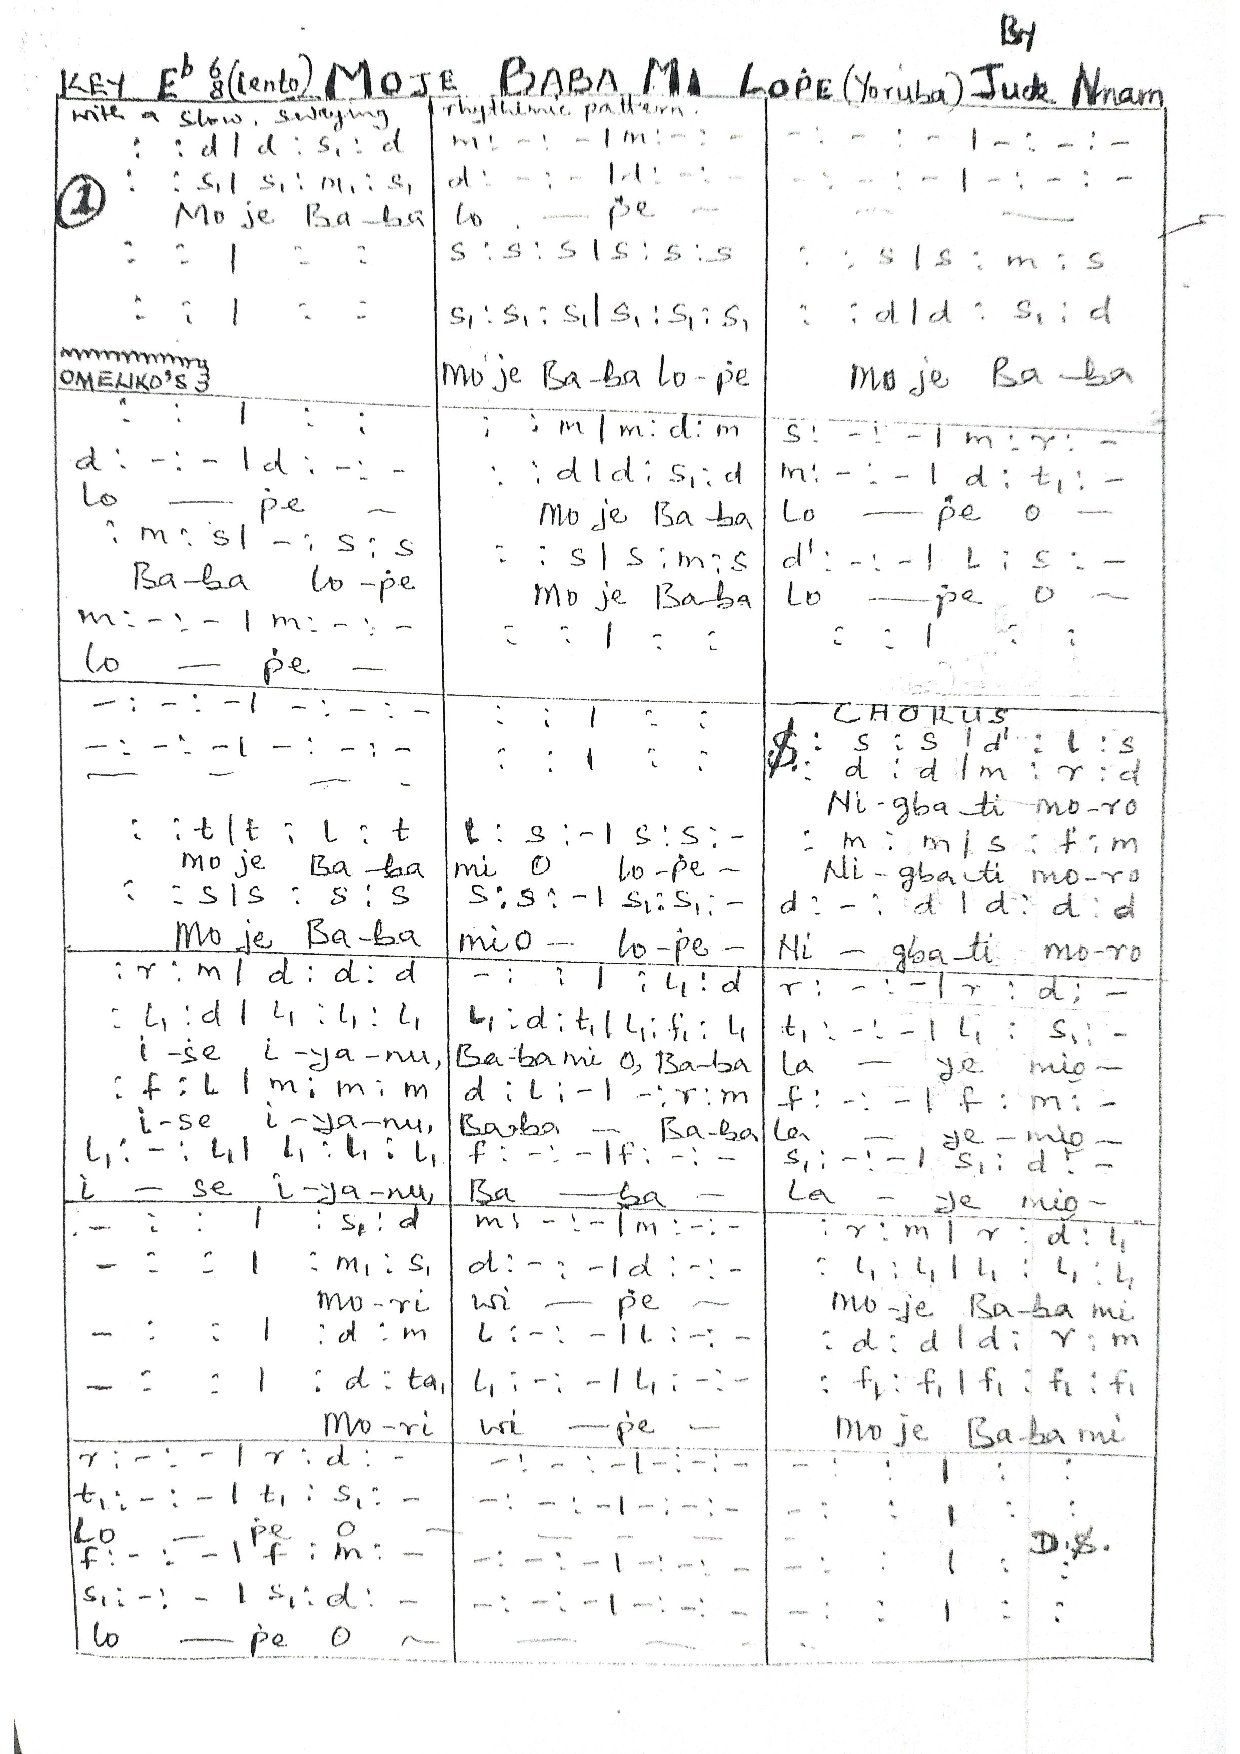 By
KEY Eb 6/8 (Lento) MOJE BABA MI LOPE (Yoruba) Jude Nnam
with a slow, swaying rhythmic pattern.
: : d | d : s₁ : d
: : s₁ | s₁ : m₁ : s₁
① Mo je Ba-ba
: : | : :
: : | : :
OMELIKO'S
m : - : - | m : - : -
d : - : - | d : - : -
lo — pe –
s : s : s | s : s : s
s₁ : s₁ : s₁ | s₁ : s₁ : s₁
Mo je Ba-ba lo-pe
- : - : - | - : - : -
- : - : - | - : - : -
– —
: : s | s : m : s
: : d | d : s₁ : d
Mo je Ba-ba
: : | : :
d : - : - | d : - : -
lo — pe ~
: m : s | - : s : s
Ba-ba lo-pe
m : - : - | m : - : -
lo — pe —
: : m | m : d : m
: : d | d : s₁ : d
Mo je Ba-ba
: : s | s : m : s
Mo je Ba-ba
: : | : :
s : - : - | m : r : -
m : - : - | d : t₁ : -
Lo — pe o —
d' : - : - | l : s : -
Lo — pe o ~
: : | : :
- : - : - | - : - : -
- : - : - | - : - : -
— — — -
: : t | t : l : t
Mo je Ba-ba
: : s | s : s : s
Mo je Ba-ba
: : | : :
: : | : :
l : s : - | s : s : -
mi O lo-pe ~
s : s : - | s₁ : s₁ : -
mi O — lo-pe –
CHORUS
𝄋 : s : s | d' : l : s
: d : d | m : r : d
Ni-gba-ti mo-ro
: m : m | s : f : m
Ni-gba-ti mo-ro
d : - : d | d : d : d
Ni — gba-ti mo-ro
: r : m | d : d : d
: l₁ : d | l₁ : l₁ : l₁
i-se i-ya-nu,
: f : l | m : m : m
i-se i-ya-nu,
l₁ : - : l₁ | l₁ : l₁ : l₁
i — se i-ya-nu,
- : : | : l₁ : d
l₁ : d : t₁ | l₁ : f₁ : l₁
Ba-ba mi O, Ba-ba
d : l : - | - : r : m
Ba-ba — Ba-ba
f : - : - | f : - : -
Ba — ba –
r : - : - | r : d : -
t₁ : - : - | l₁ : s₁ : -
la — ye mio –
f : - : - | f : m : -
La — ye – mio –
s₁ : - : - | s₁ : d : -
La – ye mio –
- : : | : s₁ : d
- : : | : m₁ : s₁
Mo-ri
- : : | : d : m
- : : | : d : ta₁
Mo-ri
m : - : - | m : - : -
d : - : - | d : - : -
wi — pe ~
l : - : - | l : - : -
l₁ : - : - | l₁ : - : -
wi — pe –
: r : m | r : d : l₁
: l₁ : l₁ | l₁ : l₁ : l₁
Mo-je Ba-ba mi
: d : d | d : r : m
: f₁ : f₁ | f₁ : f₁ : f₁
Mo je Ba-ba mi
r : - : - | r : d : -
t₁ : - : - | t₁ : s₁ : -
Lo — pe O ~
f : - : - | f : m : -
s₁ : - : - | s₁ : d : -
lo — pe O ~
- : - : - | - : - : -
- : - : - | - : - : -
— — — —
- : - : - | - : - : -
- : - : - | - : - : -
— — —
- : : | : :
- : : | : :
D.S.
- : : | : :
- : : | : :